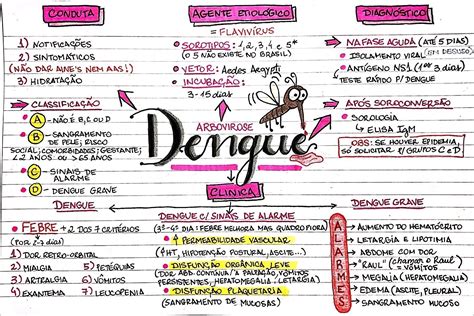 CONDUTA
1) NOTIFICAÇÕES
2) SINTOMÁTICOS
(NÃO DAR AINE'S NEM AAS!)
3) HIDRATAÇÃO
CLASSIFICAÇÃO
A - NÃO É B, C, OU D
B - SANGRAMENTO DE PELE; RISCO
SOCIAL; COMORBIDADES; GESTANTE;
<2 ANOS OU >65 ANOS
C - SINAIS DE ALARME
D - DENGUE GRAVE
AGENTE ETIOLÓGICO
= FLAVIVÍRUS
SOROTIPOS: 1, 2, 3, 4 E 5*
(O 5 NÃO EXISTE NO BRASIL)
VETOR: Aedes Aegypti
INCUBAÇÃO:
3-15 dias
ARBOVIROSE
Dengue
DIAGNÓSTICO
NA FASE AGUDA (ATÉ 5 DIAS)
ISOLAMENTO VIRAL (EM DESUSO)
ANTÍGENO NS1 (1ºs 3 dias)
TESTE RÁPIDO P/ DENGUE
APÓS SOROCONVERSÃO
SOROLOGIA
ELISA IgM
OBS: SE HOUVER EPIDEMIA,
SÓ SOLICITAR P/ GRUPOS C e D
CLÍNICA
DENGUE
FEBRE + 2 DOS 7 CRITÉRIOS
(POR 2-7 dias)
1) DOR RETRO-ORBITAL
2) MIALGIA
5) PETÉQUIAS
3) ARTRALGIA
6) VÔMITOS
4) EXANTEMA
7) LEUCOPENIA
DENGUE C/ SINAIS DE ALARME
(3º-4º DIA FEBRE MELHORA MAS QUADRO PIORA)
↑ PERMEABILIDADE VASCULAR
(↑HT, HIPOTENSÃO POSTURAL, ASCITE...)
DISFUNÇÃO ORGÂNICA LEVE
(DOR ABD. CONTÍNUA / A PALPAÇÃO, VÔMITOS
PERSISTENTES, HEPATOMEGALIA, LETARGIA)
DISFUNÇÃO PLAQUETÁRIA
(SANGRAMENTO DE MUCOSAS)
DENGUE GRAVE
ALARMES
AUMENTO DO HEMATÓCRITO
LETARGIA E LIPOTIMIA
ABDOME COM DOR
"RAUL" (chamar o Raul)
= VÔMITOS
MEGALIA - HEPATOMEGALIA
EDEMA (ASCITE, PLEURAL)
SANGRAMENTO MUCOSO